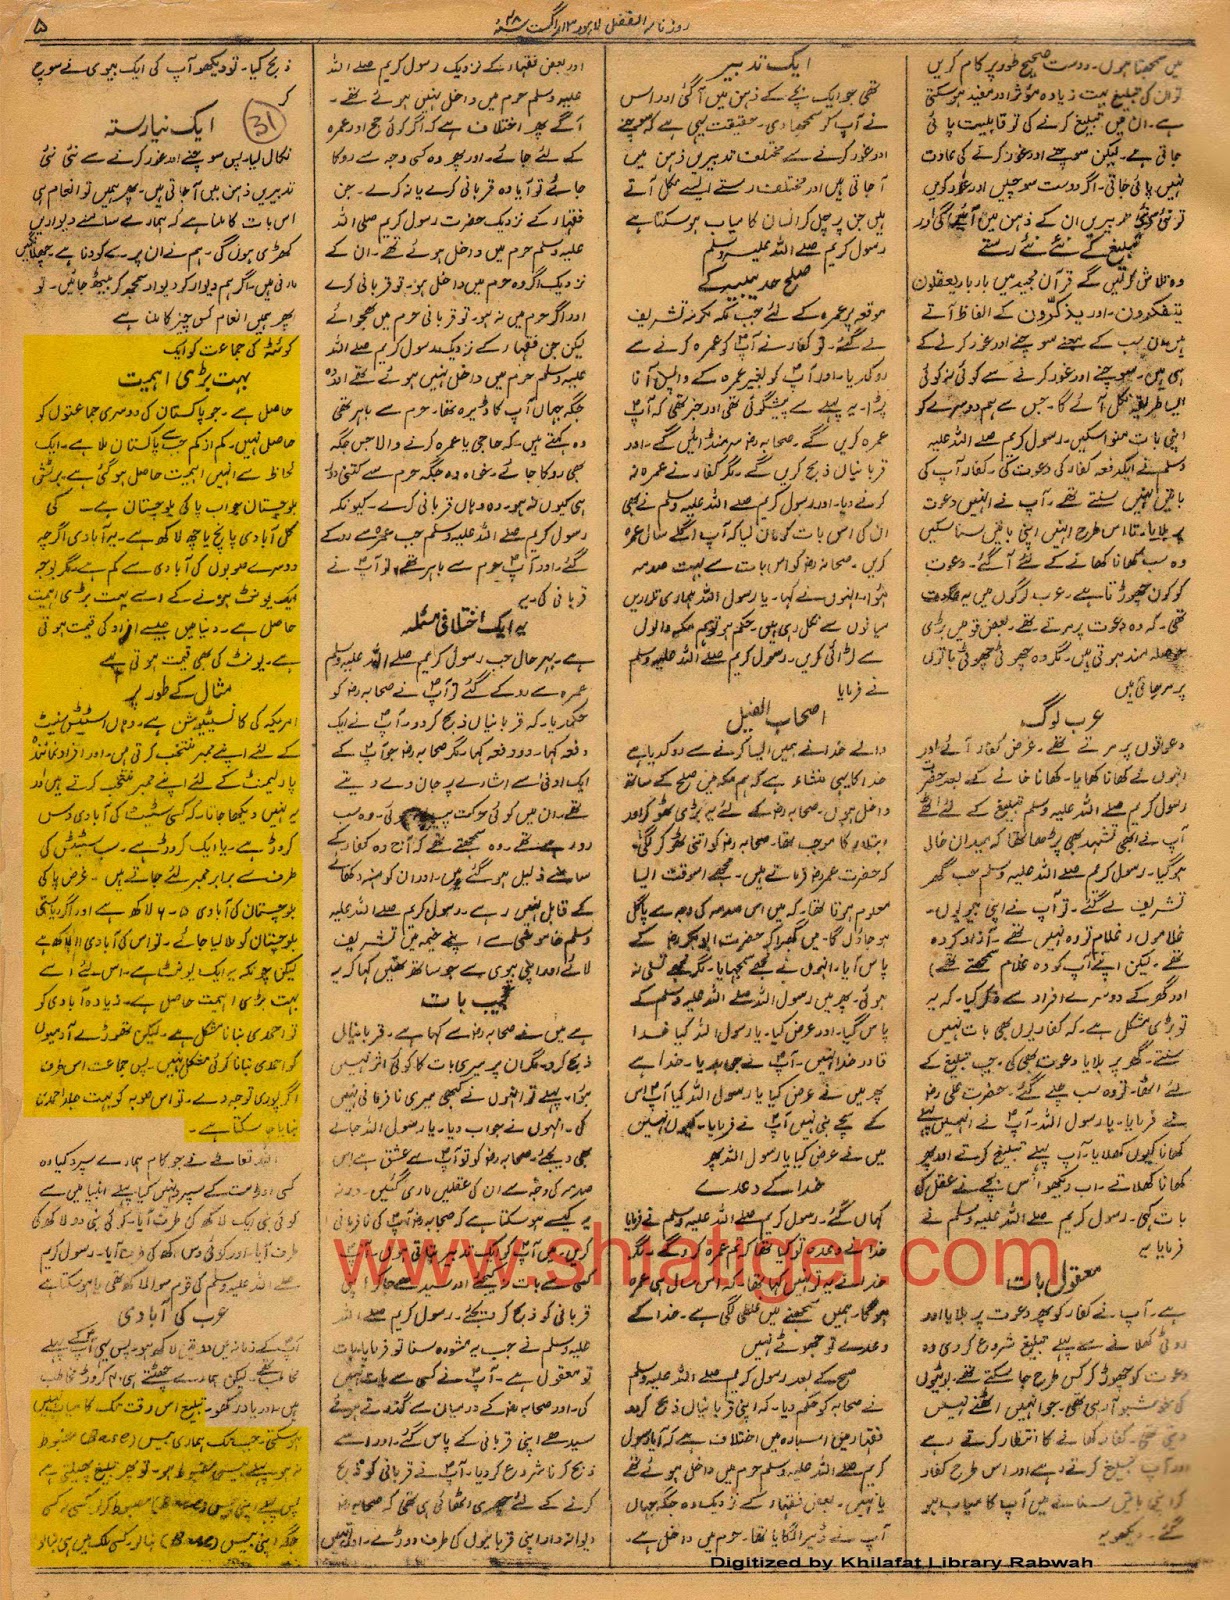 روزنامہ الفضل لاہور ۱۳ اگست ۴۸ء
۵
میں سمجھتا ہوں۔ دوست صحیح طور پر کام کریں
تو ان کی تبلیغ بہت زیادہ مؤثر اور مفید ہو سکتی
ہے۔ ان میں تبلیغ کرنے کی تو قابلیت پائی
جاتی ہے۔ لیکن سوچنے اور غور کرنے کی عادت
نہیں پائی جاتی۔ اگر دوست سوچیں اور غور کریں
تو نئی نئی تدبیریں ان کے ذہن میں آئیں گی اور
تبلیغ کے نئے نئے رستے
وہ تلاش کر لیں گے قرآن مجید میں بار بار یعقلون
یتفکرون۔ اور یذکرون کے الفاظ آتے
ہیں ان سب کے معنے سوچنے اور غور کرنے کے
ہی ہیں۔ سوچنے اور غور کرنے سے کوئی نہ کوئی
ایسا طریقہ نکل آئے گا۔ جس سے ہم دوسرے کو
اپنی بات منوا سکیں۔ رسول کریم صلے اللہ علیہ
وسلم نے ایک دفعہ کفار کی دعوت کی۔ کفار آپ کی
باتیں نہیں سنتے تھے۔ آپ نے انہیں دعوت
پر بلایا۔ تا اس طرح انہیں اپنی باتیں سنا سکیں
وہ سب کھانا کھانے کے لئے آ گئے۔ دعوت
کو کون چھوڑتا ہے۔ عرب لوگوں میں یہ عادت
تھی۔ کہ وہ دعوت پر مرتے تھے۔ بعض قومیں بڑی
حوصلہ مند ہوتی ہیں۔ مگر وہ چھوٹی چھوٹی باتوں
پر مر جاتی ہیں
عرب لوگ
دعوتوں پر مرتے تھے۔ غرض کفار آئے اور
انہوں نے کھانا کھایا۔ کھانا کھانے کے بعد حضرت
رسول کریم صلے اللہ علیہ وسلم تبلیغ کے لئے اٹھے
آپ نے ابھی تشہد بھی پڑھا تھا کہ میدان خالی
ہو گیا۔ رسول کریم صلے اللہ علیہ وسلم جب گھر
تشریف لے گئے۔ تو آپ نے اپنی بیویوں۔
غلاموں (غلام تو وہ نہیں تھے۔ آزاد کردہ
تھے۔ لیکن اپنے آپ کو وہ غلام سمجھتے تھے)
اور گھر کے دوسرے افراد سے ذکر کیا۔ کہ یہ
تو بڑی مشکل ہے۔ کہ کفار یوں بھی بات نہیں
سنتے۔ گھر پر بلایا دعوت بھی کی۔ جب تبلیغ کے
لئے اٹھا۔ تو وہ سب چلے گئے۔ حضرت علی رض
نے فرمایا۔ یا رسول اللہ۔ آپ نے انہیں پہلے
کھانا کیوں کھلایا۔ آپ پہلے تبلیغ کرتے اور پھر
کھانا کھلاتے۔ اب دیکھو اس بچے نے عقل کی
بات کہی۔ رسول کریم صلے اللہ علیہ وسلم نے
فرمایا یہ
معقول بات
ہے۔ آپ نے کفار کو پھر دعوت پر بلایا اور
روٹی کھلانے سے پہلے تبلیغ شروع کر دی وہ
دعوت کو چھوڑ کر کس طرح جا سکتے تھے۔ بوٹیوں
کی خوشبو آ رہی تھی۔ جو انہیں اٹھنے نہیں
دیتی تھی۔ کفار کھانے کا انتظار کرتے رہے
اور آپ تبلیغ کرتے رہے اور اس طرح کفار
کو اپنی باتیں سنانے میں آپ کامیاب ہو
گئے۔ دیکھو یہ
ایک تدبیر
تھی جو ایک بچے کے ذہن میں آ گئی اور اس
نے آپ کو سمجھا دی۔ حقیقت یہی ہے کہ سوچنے
اور غور کرنے سے مختلف تدبیریں ذہن میں
آ جاتی ہیں اور مختلف رستے ایسے نکل آتے
ہیں جن پر چل کر انسان کامیاب ہو سکتا ہے
رسول کریم صلے اللہ علیہ وسلم
صلح حدیبیہ کے
موقعہ پر عمرہ کے لئے جب مکہ مکرمہ تشریف
لے گئے۔ تو کفار نے آپ کو عمرہ کرنے سے
روک دیا۔ اور آپ کو بغیر عمرہ کے واپس آنا
پڑا۔ یہ پہلے سے پیشگوئی تھی اور خبر تھی کہ آپ
عمرہ کریں گے۔ صحابہ رض سر منڈوائیں گے۔ اور
قربانیاں ذبح کریں گے۔ مگر کفار نے عمرہ نہ
کرنے دیا۔ اور رسول کریم صلے اللہ علیہ وسلم نے بھی
ان کی اس بات کو مان لیا کہ آپ اگلے سال عمرہ
کریں۔ صحابہ رض کو اس بات سے بہت صدمہ
ہوا۔ انہوں نے کہا۔ یا رسول اللہ ہماری تلواریں
میانوں سے نکل رہی ہیں۔ حکم ہو تو ہم مکہ والوں
سے لڑائی کریں۔ رسول کریم صلے اللہ علیہ وسلم
نے فرمایا
اصحاب الفیل
والے خدا نے ہمیں ایسا کرنے سے روک دیا ہے
خدا کا یہی منشاء ہے کہ ہم مکہ میں صلح کے ساتھ
داخل ہوں۔ صحابہ رض کے لئے یہ بڑی ٹھوکر اور
ابتلاء کا موجب تھا۔ صحابہ رض کو اتنی ٹھوکر لگی
کہ حضرت عمر رض فرماتے ہیں۔ مجھے اس وقت ایسا
معلوم ہوتا تھا۔ کہ میں اس صدمہ کی وجہ سے پاگل
ہو جاؤں گا۔ میں گھبرا کر حضرت ابوبکر رض کے
پاس آیا۔ انہوں نے مجھے سمجھایا۔ مگر مجھے تسلی نہ
ہوئی۔ پھر میں رسول اللہ صلے اللہ علیہ وسلم کے
پاس گیا۔ اور عرض کیا۔ یا رسول اللہ کیا خدا
قادر خدا نہیں۔ آپ نے جواب دیا۔ خدا ہے
پھر میں نے عرض کیا یا رسول اللہ کیا آپ اس
کے سچے نبی نہیں آپ نے فرمایا۔ کیوں نہیں
میں نے عرض کیا یا رسول اللہ پھر
خدا کے وعدے
کہاں گئے۔ رسول کریم صلے اللہ علیہ وسلم نے فرمایا
خدا نے وعدہ تو کیا تھا کہ تم عمرہ کرو گے۔ مگر
خدا نے یہ تو نہیں کہا تھا۔ کہ اس سال ہی عمرہ
ہوگا۔ ہمیں سمجھنے میں غلطی لگی ہے۔ خدا کے
وعدے تو جھوٹے نہیں
صلح کے بعد رسول کریم صلے اللہ علیہ وسلم
نے صحابہ کو حکم دیا۔ کہ اپنی قربانیاں ذبح کر دو
فقہاء میں اس بارہ میں اختلاف ہے کہ آیا رسول
کریم صلے اللہ علیہ وسلم حرم میں داخل ہوئے تھے
یا نہیں۔ بعض فقہاء کے نزدیک وہ جگہ جہاں
آپ نے ڈیرا لگایا تھا۔ حرم میں داخل ہے۔
اور بعض فقہاء کے نزدیک رسول کریم صلے اللہ
علیہ وسلم حرم میں داخل نہیں ہوئے تھے۔
آگے پھر اختلاف ہے کہ اگر کوئی حج اور عمرہ
کے لئے جائے۔ اور پھر وہ کسی وجہ سے روکا
جائے تو آیا وہ قربانی کرے یا نہ کرے۔ جن
فقہاء کے نزدیک حضرت رسول کریم صلی اللہ
علیہ وسلم حرم میں داخل ہوئے تھے۔ ان کے
نزدیک اگر وہ حرم میں داخل ہو۔ تو قربانی کرے
اور اگر حرم میں نہ ہو۔ تو قربانی حرم میں بھجوائے
لیکن جن فقہاء کے نزدیک رسول کریم صلے اللہ
علیہ وسلم حرم میں داخل نہیں ہوئے تھے اور وہ
جگہ جہاں آپ کا ڈیرہ تھا۔ حرم سے باہر تھی
وہ کہتے ہیں۔ کہ حاجی یا عمرہ کرنے والا جس جگہ
بھی روکا جائے۔ خواہ وہ جگہ حرم سے کتنی دور
ہی کیوں نہ ہو۔ وہ وہاں قربانی کرے۔ کیونکہ
رسول کریم صلے اللہ علیہ وسلم جب عمرہ سے روکے
گئے۔ اور آپ حرم سے باہر تھے۔ تو آپ نے
قربانی کی۔ یہ
یہ ایک اختلافی مسئلہ
ہے۔ بہر حال جب رسول کریم صلے اللہ علیہ وسلم
عمرہ سے روکے گئے تو آپ نے صحابہ رض کو
حکم دیا۔ کہ قربانیاں ذبح کر دو۔ آپ نے ایک
دفعہ کہا۔ دو دفعہ کہا۔ مگر صحابہ رض جو آپ کے
ایک ادنی سے اشارے پر جان دے دیتے
تھے۔ ان میں کوئی حرکت پیدا نہ ہوئی۔ وہ سب
رو رہے تھے۔ وہ سمجھتے تھے کہ آج وہ کفار کے
سامنے ذلیل ہو گئے ہیں۔ اور ان کو منہ دکھانے
کے قابل نہیں رہے۔ رسول کریم صلے اللہ علیہ
وسلم خاموشی سے اپنے خیمہ میں تشریف
لائے اور اپنی بیوی سے جو ساتھ تھیں کہا کہ یہ
عجیب بات
ہے میں نے صحابہ رض سے کہا ہے۔ قربانیاں
ذبح کر دو مگر ان پر میری بات کا کوئی اثر نہیں
ہوا۔ پہلے تو انہوں نے کبھی میری نافرمانی نہیں
کی۔ انہوں نے جواب دیا۔ یا رسول اللہ جانے
بھی دیجئے۔ صحابہ رض کو تو آپ سے عشق ہے اس
صدمہ کی وجہ سے ان کی عقلیں ماری گئیں۔ ورنہ
یہ کیسے ہو سکتا ہے کہ صحابہ رض آپ کی نافرمانی
کریں۔ میں آپ کو ایک تدبیر بتاتی ہوں۔ آپ
کسی سے بات نہ کیجئے اور سیدھے جا کر اپنی
قربانی کو ذبح کر دیجئے۔ رسول کریم صلے اللہ
علیہ وسلم نے جب یہ مشورہ سنا تو فرمایا بات
تو معقول ہے۔ آپ نے کسی سے بات نہیں
کی۔ اور صحابہ رض کے درمیان سے گذرتے ہوئے
سیدھے اپنی قربانی کے پاس گئے۔ اور اسے
ذبح کرنا شروع کر دیا۔ آپ نے قربانی کو ذبح
کرنے کے لئے چھری اٹھائی ہی تھی کہ صحابہ رض
دیوانہ وار اپنی قربانیوں کی طرف دوڑے۔ اور انہیں
ذبح کیا۔ تو دیکھو آپ کی ایک بیوی نے سوچ
کر
ایک نیا رستہ
31
نکال لیا۔ پس سوچنے اور غور کرنے سے نئی نئی
تدبیریں ذہن میں آ جاتی ہیں۔ پھر ہمیں تو انعام ہی
اس بات کا ملنا ہے کہ ہمارے سامنے دیواریں
کھڑی ہوں گی۔ ہم نے ان پر سے کودنا ہے۔ چھلانگیں
مارنی ہیں۔ اگر ہم دیوار کو دیوار سمجھ کر بیٹھ جائیں۔ تو
پھر ہمیں انعام کس چیز کا ملنا ہے
کوئٹہ کی جماعت کو ایک
بہت بڑی اہمیت
حاصل ہے۔ جو پاکستان کی دوسری جماعتوں کو
حاصل نہیں۔ کم از کم جب سے پاکستان ملا ہے۔ ایک
لحاظ سے انہیں اہمیت حاصل ہو گئی ہے۔ برٹش
بلوچستان جواب پاکی بلوچستان ہے۔ کی
کل آبادی پانچ یا چھ لاکھ ہے۔ یہ آبادی اگرچہ
دوسرے صوبوں کی آبادی سے کم ہے۔ مگر بوجہ
ایک یونٹ ہونے کے اسے بہت بڑی اہمیت
حاصل ہے۔ دنیا میں جیسے افراد کی قیمت ہوتی
ہے۔ یونٹ کی بھی قیمت ہوتی ہے
مثال کے طور پر
امریکہ کی کانسٹیٹیوشن ہے۔ وہاں اسٹیٹس سینٹ
کے لئے اپنے ممبر منتخب کرتی ہیں۔ اور افراد نمائندہ
پارلیمنٹ کے لئے اپنے ممبر منتخب کرتے ہیں اور
یہ نہیں دیکھا جاتا۔ کہ کسی سٹیٹ کی آبادی دس
کروڑ ہے۔ یا ایک کروڑ ہے۔ سب سٹیٹس کی
طرف سے برابر ممبر لئے جاتے ہیں۔ غرض پاکی
بلوچستان کی آبادی ۵-۶ لاکھ ہے اور اگر ریاستی
بلوچستان کو ملا لیا جائے۔ تو اس کی آبادی ۱۱ لاکھ ہے
لیکن چونکہ یہ ایک یونٹ ہے۔ اس لئے اسے
بہت بڑی اہمیت حاصل ہے۔ زیادہ آبادی کو
تو احمدی بنانا مشکل ہے۔ لیکن تھوڑے آدمیوں
کو احمدی بنانا کوئی مشکل نہیں۔ پس جماعت اس طرف
اگر پوری توجہ دے۔ تو اس صوبہ کو بہت جلد احمدی
بنایا جا سکتا ہے۔
اللہ تعالے نے جو کام ہمارے سپرد کیا وہ
کسی اور امت کے سپرد نہیں کیا پہلے انبیاء میں سے
کوئی نبی ایک لاکھ کی طرف آیا۔ کوئی نبی دو لاکھ کی
طرف آیا۔ اور کوئی دس لاکھ کی طرف آیا۔ رسول کریم
صلے اللہ علیہ وسلم کی قوم سوا لاکھ تھی یا ہو سکتا ہے
عرب کی آبادی
آپ کے زمانہ میں دو تین لاکھ ہو۔ پس یہی آپ کے پہلے
مخاطب تھے۔ لیکن ہمارے چھٹتے ہی ۴۰ کروڑ مخاطب
ہیں۔ اور یاد رکھو۔ تبلیغ اس وقت تک کامیاب نہیں
ہو سکتی۔ جب تک ہماری بیس (Base) مضبوط
نہ ہو پہلے بیس مضبوط ہو۔ تو پھر تبلیغ پھیلتی ہے
پس پہلے اپنی بیس (Base) مضبوط کر لو کسی نہ کسی
جگہ اپنی بیس (Base) بنا لو۔ کسی ملک میں ہی بنا لو
www.shiatiger.com
Digitized by Khilafat Library Rabwah